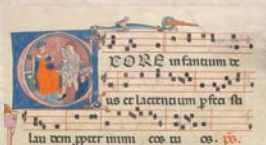 EX ORE in fantium de
us et lactentium pfeci sti
lau dem ppter inimi cos tu os. ps.